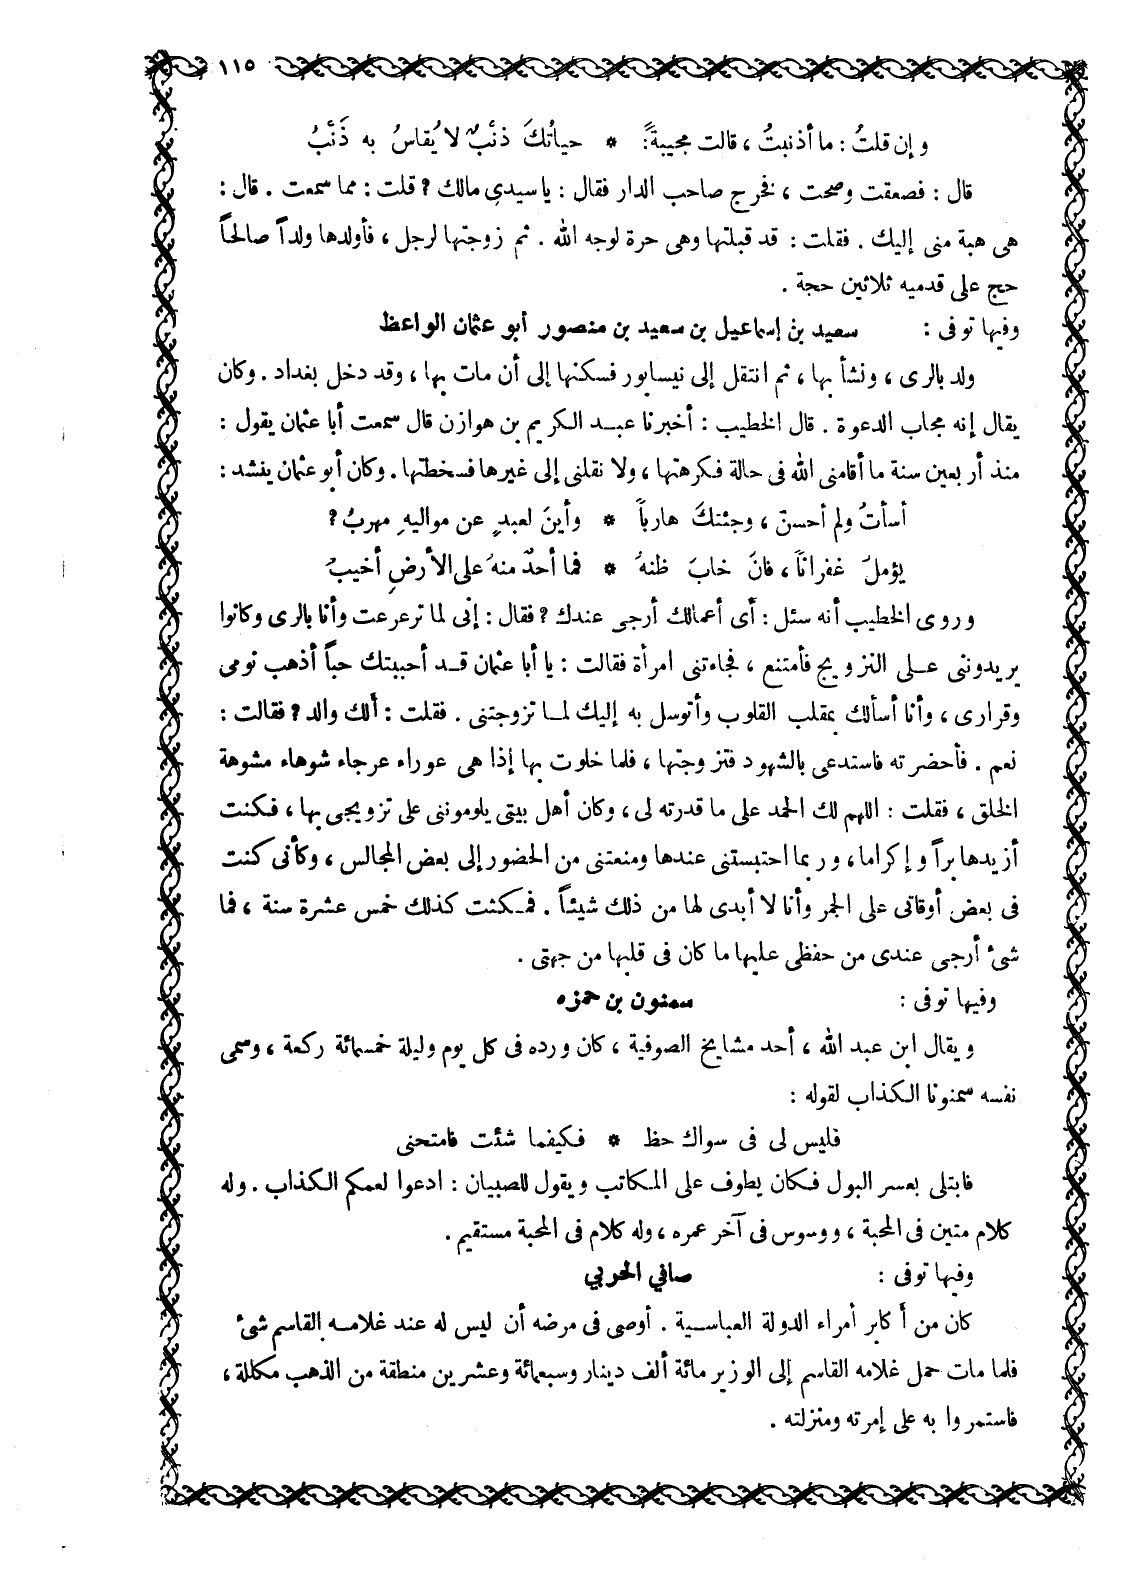 ١١٥
و إن قلتُ : ما أذنبتُ ، قالت مجيبةً : * حياتُكَ ذنْبٌ لا يُقاسُ به ذَنْبُ
قال : فصعقت وصحت ، فخرج صاحب الدار فقال : يا سيدى مالك ؟ قلت : مما سمعت . قال :
هى هبة منى إليك . فقلت : قد قبلتها وهى حرة لوجه الله . ثم زوجتها لرجل ، فأولدها ولداً صالحاً
حج على قدميه ثلاثين حجة .
وفيها توفى : سعيد بن إسماعيل بن سعيد بن منصور أبو عثمان الواعظ
ولد بالرى ، ونشأ بها ، ثم انتقل إلى نيسابور فسكنها إلى أن مات بها ، وقد دخل بغداد . وكان
يقال إنه مجاب الدعوة . قال الخطيب : أخبرنا عبد الكريم بن هوازن قال سمعت أبا عثمان يقول :
منذ أربعين سنة ما أقامنى الله فى حالة فكرهتها ، ولا نقلنى إلى غيرها فسخطتها . وكان أبو عثمان ينشد :
أسأتُ ولم أحسن ، وجئتكَ هارباً * وأينَ لعبدٍ عن مواليهِ مهربُ ؟
يؤملُ غفراناً ، فان خابَ ظنهُ * فما أحدٌ منهُ على الأرضِ أخيبُ
وروى الخطيب أنه سئل : أى أعمالك أرجى عندك ؟ فقال : إنى لما ترعرعت وأنا بالرى وكانوا
يريدوننى على التزويج فأمتنع ، فجاءتنى امرأة فقالت : يا أبا عثمان قد أحببتك حباً أذهب نومى
وقرارى ، وأنا أسألك بمقلب القلوب وأتوسل به إليك لما تزوجتنى . فقلت : ألك والد ؟ فقالت :
نعم . فأحضرته فاستدعى بالشهود فتزوجتها ، فلما خلوت بها إذا هى عوراء عرجاء شوهاء مشوهة
الخلق ، فقلت : اللهم لك الحمد على ما قدرته لى ، وكان أهل بيتى يلوموننى على تزويجى بها ، فكنت
أزيدها براً وإكراما ، وربما احتبستنى عندها ومنعتنى من الحضور إلى بعض المجالس ، وكأنى كنت
فى بعض أوقاتى على الجمر وأنا لا أبدى لها من ذلك شيئاً . فمكثت كذلك خمس عشرة سنة ، فما
شئ أرجى عندى من حفظى عليها ما كان فى قلبها من جهتى .
وفيها توفى : سمنون بن حمزه
ويقال ابن عبد الله ، أحد مشايخ الصوفية ، كان ورده فى كل يوم وليلة خمسمائة ركعة ، وسمى
نفسه سمنونا الكذاب لقوله :
فليس لى فى سواك حظ * فكيفما شئت فامتحنى
فابتلى بعسر البول فكان يطوف على المكاتب ويقول للصبيان : ادعوا لعمكم الكذاب . وله
كلام متين فى المحبة ، ووسوس فى آخر عمره ، وله كلام فى المحبة مستقيم .
وفيها توفى : صافي الحربي
كان من أكابر أمراء الدولة العباسية . أوصى فى مرضه أن ليس له عند غلامه القاسم شئ
فلما مات حمل غلامه القاسم إلى الوزير مائة ألف دينار وسبعمائة وعشرين منطقة من الذهب مكللة ،
فاستمروا به على إمرته ومنزلته .